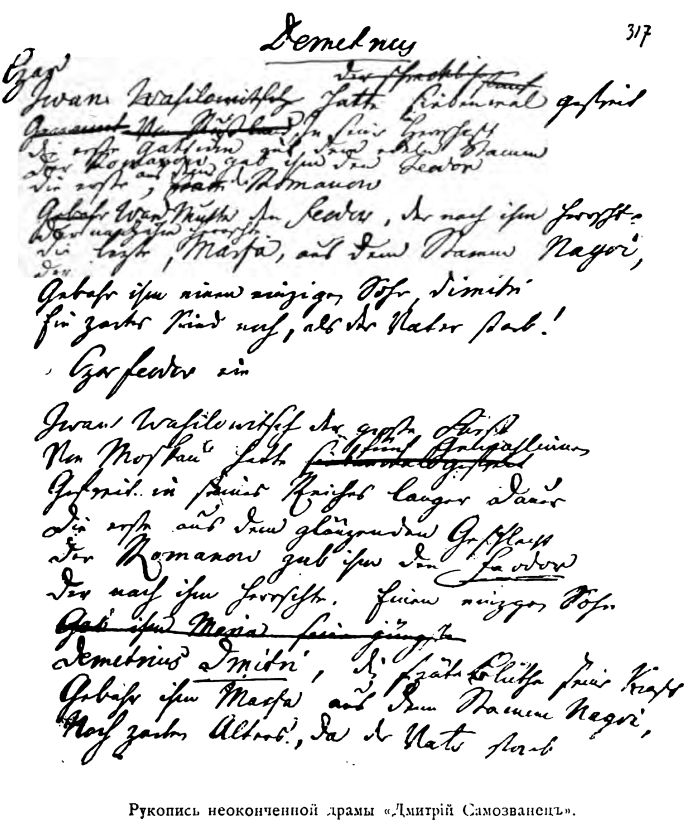 Demetrius
317
Czar
der schreckliche
Iwan Wasilowitsch hatte siebenmal gefreit
Genannt Von Rußland In seiner Herrschaft
die erste Gattin aus dem edeln Stamm
der Romanow gab ihm den Feodor
die erste, aus dem Romanow
Gebahr den Feodor, der nach ihm herrscht.
der nach ihm herrschte
die lezte, Marfa, aus dem Stamm Nagoi,
der
Gebahr ihm einen einzigen Sohn Dimitri
Ein zartes Kind noch, als der Vater starb!
Czar Feodor ein
Iwan Wasilowitsch der große Fürst
Von Moskau hatte fünf Gemahlinnen
siebenmal gefreit
Gefreit in seines Reiches langer Dauer
Die erste aus dem glänzenden Geschlecht
Der Romanow gab ihm den Feodor
Der nach ihm herrschte. Einen einzgen Sohn
Gab ihm Maria seine jüngste
Demetrius Dmitri, die späte Blüthe seiner Kraft
Gebahr ihm Marfa aus dem Stamm Nagoi,
Noch zarten Alters, da der Vater starb
Рукопись неоконченной драмы «Дмитрій Самозванецъ».